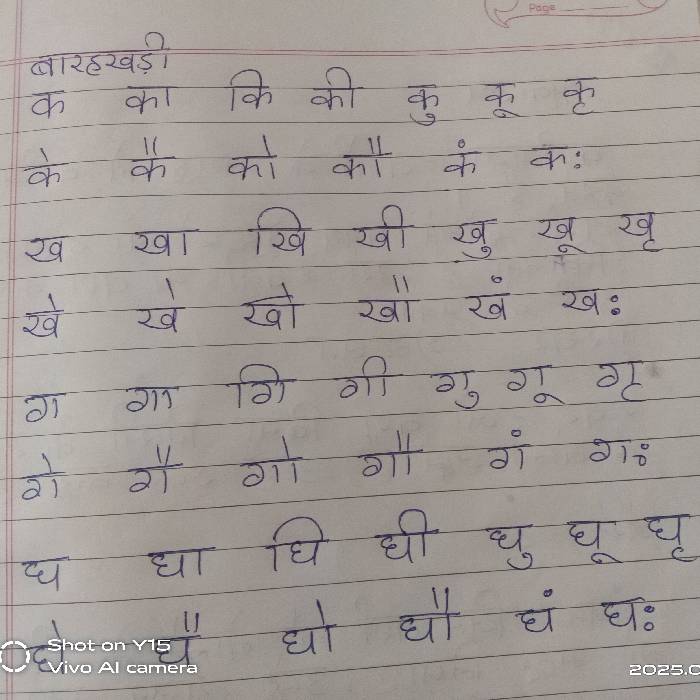 Page
बारहखड़ी
क का कि की कु कू कृ
के कै को कौ कं कः
ख खा खि खी खु खू खृ
खे खे खो खौ खं खः
ग गा गि गी गु गू गृ
गे गै गो गौ गं गः
घ घा घि घी घु घू घृ
घे घै घो घौ घं घः
Shot on Y15
Vivo AI camera
2025.0